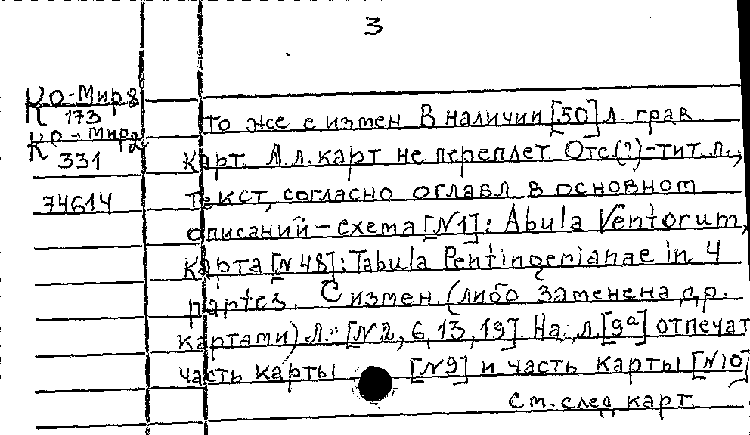 3
К 0-Мир 8
173
К 0-Мир 2
331
74614
То же с измен В наличии [50] л. грав.
карт. л. л. карт не переплет. Отс(?)-тит. л.,
текст, согласно оглавл в основном
описаний - схема [N1]: Abula Ventorum,
карта [N 48]: Tabula Pentingerianae in 4
partes. С измен (либо заменена др.
картами) л. [N2, 6, 13, 19] На л. [9а] отпечат
часть карты [N9] и часть карты [N10]
См. след. карт